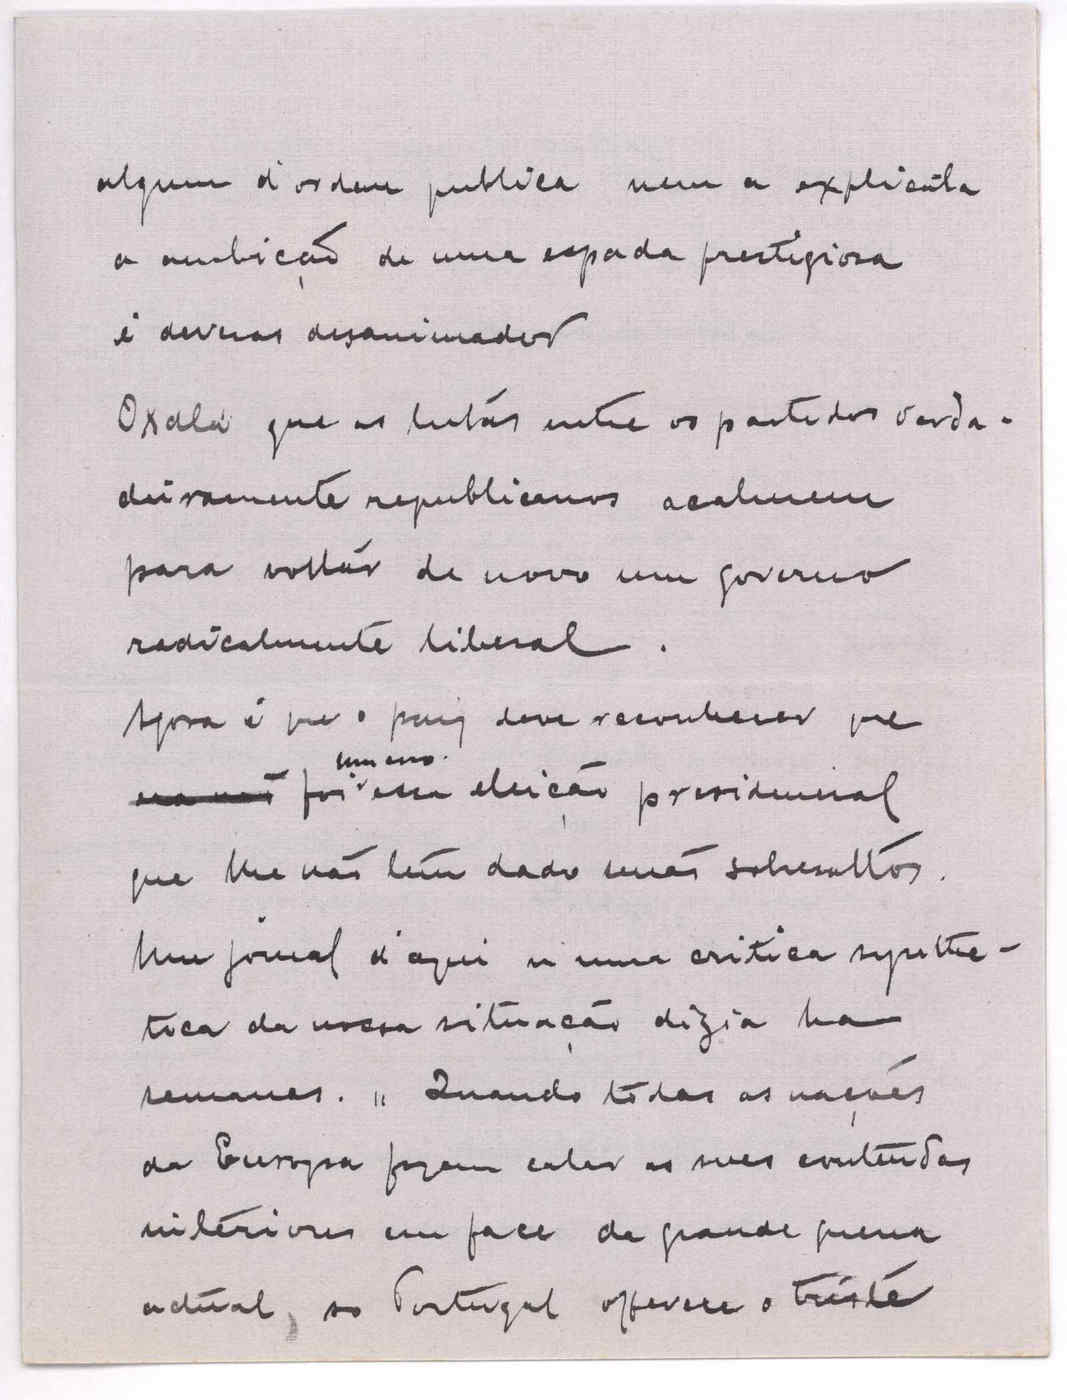 algum d'ordem publica nem a explical-a
a ambição de uma espada prestigiosa
é deveras desanimador
Oxalá que as luctas entre os partidos verda-
deiramente republicanos acalmem
para voltar de novo um governo
radicalmente liberal.
Agora é que o paiz deve reconhecer que
foi um erro essa eleição presidencial
que lhe não tem dado senão sobresaltos.
Um jornal d'aqui n'uma critica synthe-
tica da nossa situação dizia ha
semanas. " Quando todas as nações
da Europa fazem calar as suas contendas
interiores em face da grande guerra
actual, so Portugal offerece o triste